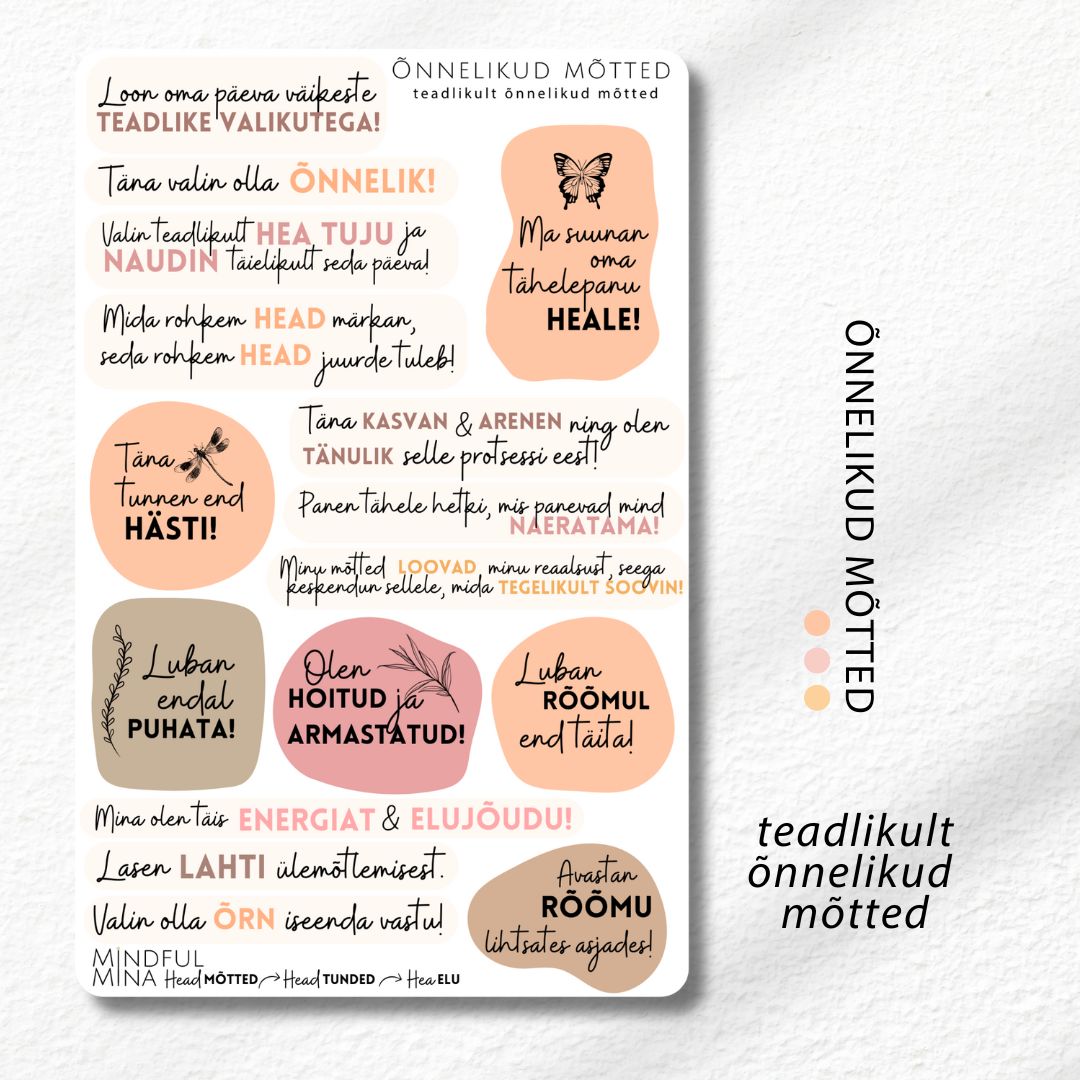 ÕNNELIKUD MÕTTED
teadlikult õnnelikud mõtted
Loon oma päeva väikeste
TEADLIKE VALIKUTEGA!
Täna valin olla ÕNNELIK!
Valin teadlikult HEA TUJU ja
NAUDIN täielikult seda päeva!
Mida rohkem HEAD märkan,
seda rohkem HEAD juurde tuleb!
Ma suunan
oma
tähelepanu
HEALE!
Täna
tunnen end
HÄSTI!
Täna KASVAN & ARENEN ning olen
TÄNULIK selle protsessi eest!
Panen tähele hetki, mis panevad mind
NAERATAMA!
Minu mõtted LOOVAD minu reaalsust, seega
keskendun sellele, mida TEGELIKULT SOOVIN!
Luban
endal
PUHATA!
Olen
HOITUD ja
ARMASTATUD!
Luban
RÕÕMUL
end täita!
Mina olen täis ENERGIAT & ELUJÕUDU!
Lasen LAHTI ülemõtlemisest.
Valin olla ÕRN iseenda vastu!
Avastan
RÕÕMU
lihtsates asjades!
MINDFUL
MINA Head MÕTTED → Head TUNDED → Hea ELU
ÕNNELIKUD MÕTTED
teadlikult
õnnelikud
mõtted